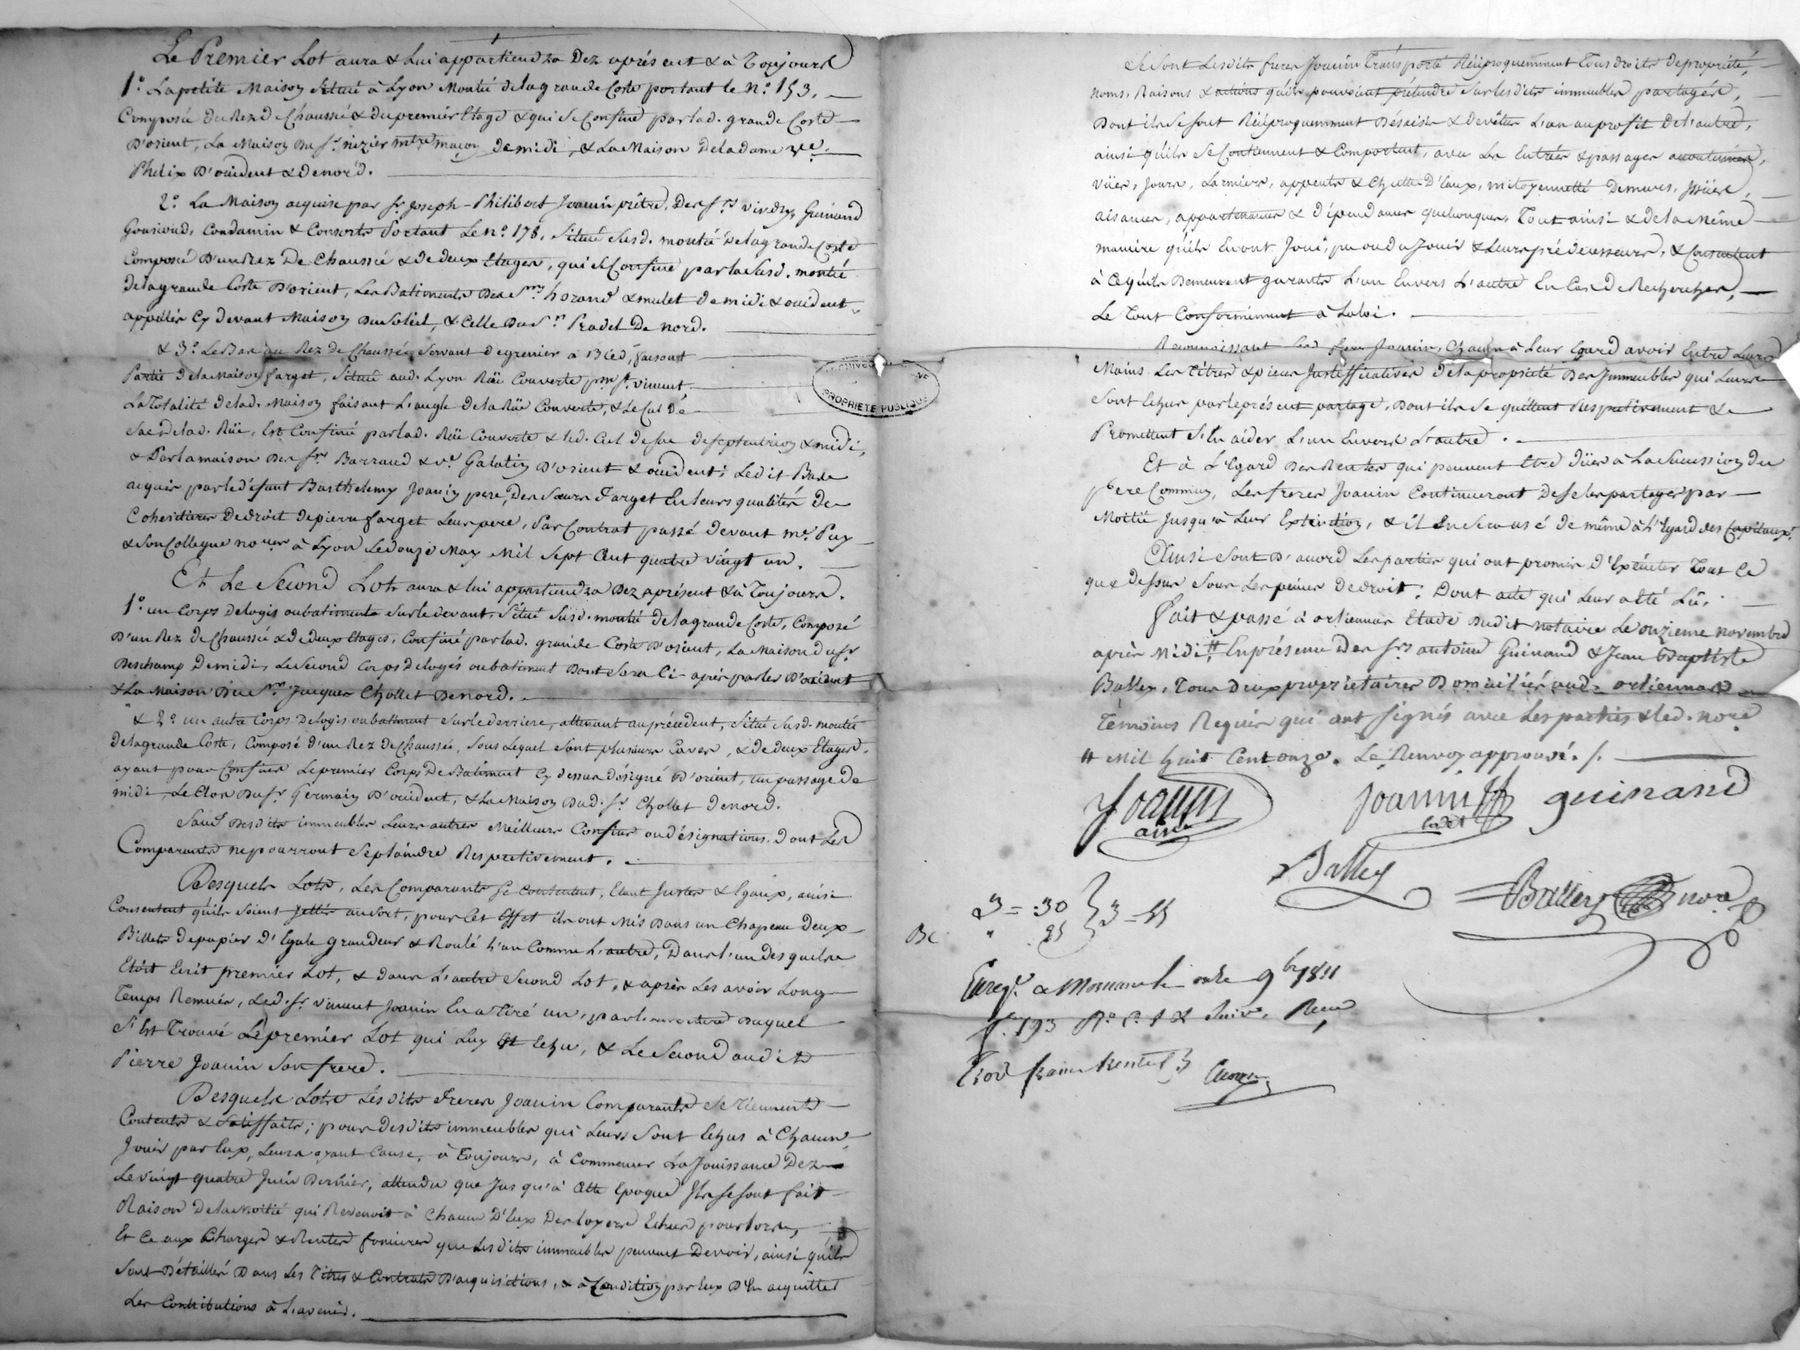 Le Premier Lot aura & Lui appartiendra Dez aprésent & à Toujours
1° La petite Maison Située à Lyon Montée de la grande Coste portant le N° 153,
Composée du Rez de Chaussée & du premier Etage & qui Se Confine par lad. grande Coste
D'orient, La Maison Du Sr. nizier mtre maçon de midi, & La Maison de la dame Ve.
Philix D'occident & de nord.
2° La Maison acquise par Sr. Joseph-Philibert Joannin prêtre, Des Srs vindry, Guinand
Condamin & Consorts Portant Le N° 178, Située Susd. montée de la grande Coste
Composée D'un Rez De Chaussée & de deux Etages, qui Se Confine par la Susd. montée
de la grande Coste D'orient, Les Batiments Des Srs & mulet de midi & occident
appellés Cy devant Maison Du Soleil, & Celle Du Sr. Pradel De nord.
& 3° Le Bas au Rez de Chaussée Servant de grenier à Bled, faisant
Partie de la Maison farget, Située aud. Lyon Rüe Couverte St. vincent,
La Totalité de lad. Maison faisant L'angle de la Rüe Couverte, & Le Cul de
Sac de lad. Rüe, Est Confiné par lad. Rüe Couverte & led. Cul de Sac de septentrion & midi,
& Par la maison Des Srs. Barraud & Ve. Galatin D'orient & occident; Le dit Bas
acquis par le défunt Barthelemy Joanin pere, Des Sœurs Farget En leurs qualités de
Cohéritieres De droit de pierre farget Leur pere, Par Contrat passé devant Me. Puy
& Son Collegue nores à Lyon Le douze May Mil Sept Cent quatre vingt un.
Et Le Second Lot aura & lui appartiendra Dez aprésent & à Toujours.
1° un Corps de Logis ou batiments Sur le devant, Situé Susd. montée de la grande Coste, Composé
D'un Rez de Chaussée & de deux Etages, Confiné par lad. grande Coste D'orient, La Maison du Sr
Deschamp De midi, Le Second Corps de Logis ou batiment Dont Sera Ci-après parler D'occident
& La Maison Du Sr. Jacques Chollet De nord.
& 2° un autre Corps de Logis ou batiment Sur le derriere, attenant au précédent, Situé Susd. montée
de la grande Coste, Composé d'un Rez de Chaussée, Sous Lequel Sont plusieurs Caves, & de deux Etages,
ayant pour Confins Le premier Corps De Batiment Cy dessus désigné D'orient, un passage De
midi, Le Clos Du Sr Germain D'occident, & La Maison Dud. Sr. Chollet de nord.
Sauf Desdits immeubles Leurs autres Meilleurs Confins ou désignations, Dont Les
Comparants ne pourront Se plaindre Respectivement.
Desquels Lots, Les Comparants se Contentent, Etant Justes & Egaux, ainsi
Consentent qu'ils Soient Jettés au Sort, pour Cet Effet ils ont Mis Dans un Chapeau Deux
Billets De papier D'Egale grandeur & Roulé L'un Comme L'autre, Dans L'un desquels
Etoit Ecrit premier Lot, & dans L'autre Second Lot, & après Les avoir Long
Temps Remués, Led. Sr. vincent Joanin En a Tiré un, par L'ouverture Duquel
S'Est Trouvé Le premier Lot qui Luy Est Echu, & Le Second audit
Pierre Joanin Son frere.
Desquels Lots Lesdits Freres Joanin Comparants Se Tiennent
Contents & Satisffaits; pour Desdits immeubles qui Leurs Sont Echus à Chacun,
Jouir par Eux, Leurs ayant Cause, à Toujours, à Commencer La Jouissance Dez
Le vingt quatre Juin Dernier, attendu que Jusqu'à Cette Epoque Ils se Sont fait
Raison De la moitié qui Revenoit à Chacun D'Eux Des loyers Echus pour lors,
Et Ce aux Charges & Rentes foncieres que Lesdits immeubles peuvent Devoir, ainsi qu'ils
Sont Détaillés Dans Les Titres & Contrats D'acquisitions, & à Condition par Eux D'En acquitter
Les Contributions à L'avenir.
Se Sont Lesdits freres Joanin Transporté Réciproquemment Tous droits de propriété,
noms, Raisons & actions qu'ils pouvoient prétendre Sur Lesdits immeubles partagés,
Dont ils Se Sont Réciproquemment Désaisis & Dévêtus L'un au profit De L'autre,
ainsi qu'ils Se Contiennent & Comportent, avec Les Entrées & passages accoutumés,
Vües, Jours, Larmiers, appents & Chutte D'Eaux, mitoyenneté De murs, Issües,
aisances, appartenances & dépendances quelconques, Tout ainsi & de la Même
maniere qu'ils En ont Joui, pu ou du Jouir & Leurs prédecesseurs, & Consentent
à Ce qu'ils Demeurent garants L'un Envers L'autre En Cas De Recherches,
Le Tout Conformément à La Loi.
Reconnoissant Lesd. freres Joanin, Chacun à Leur Egard avoir Entre Leurs
Mains Les Titres & pieces Justifficatives De la propriété Des Immeubles qui Leurs
Sont Echus par le présent partage, Dont ils Se quittent Respectivement &
Promettent S'En aider L'un Envers L'autre.
Et à L'Egard Des Rentes qui peuvent Etre Dües à La Succession du
Pere Commun, Les freres Joanin Continueront De Se les partager par
Moitié Jusqu'à Leur Extinction, & il En Sera usé de même à L'Egard des Capitaux.
Ainsi Sont D'accord Les parties qui ont promis D'Exécuter Tout Ce
que Dessus Sous Les peines De droit. Dont acte qui Leur a été Lû.
Fait & passé à orliennas Etude Dudit notaire Le onzieme novembre
après Midi # En présence Des Srs antoine Guinand & Jean Baptiste
Balley, Tous Deux proprietaires Domiciliés aud. orliennas
Témoins Requis qui ont signés avec Les parties & led. nore
# Mil huit Cent onze. Le Renvoy approuvé./.
Joanin
ainé
Joannin
cadet
guinand
Balley
Balley nore
3 = 30
25
3 = 55
Be
Enregt. à Mornant le onze 9bre 1811
f° 193 Ro C. 1 & Suiv. Recu
Trois francs trente c.
PROPRIÉTÉ PUBLIQUE